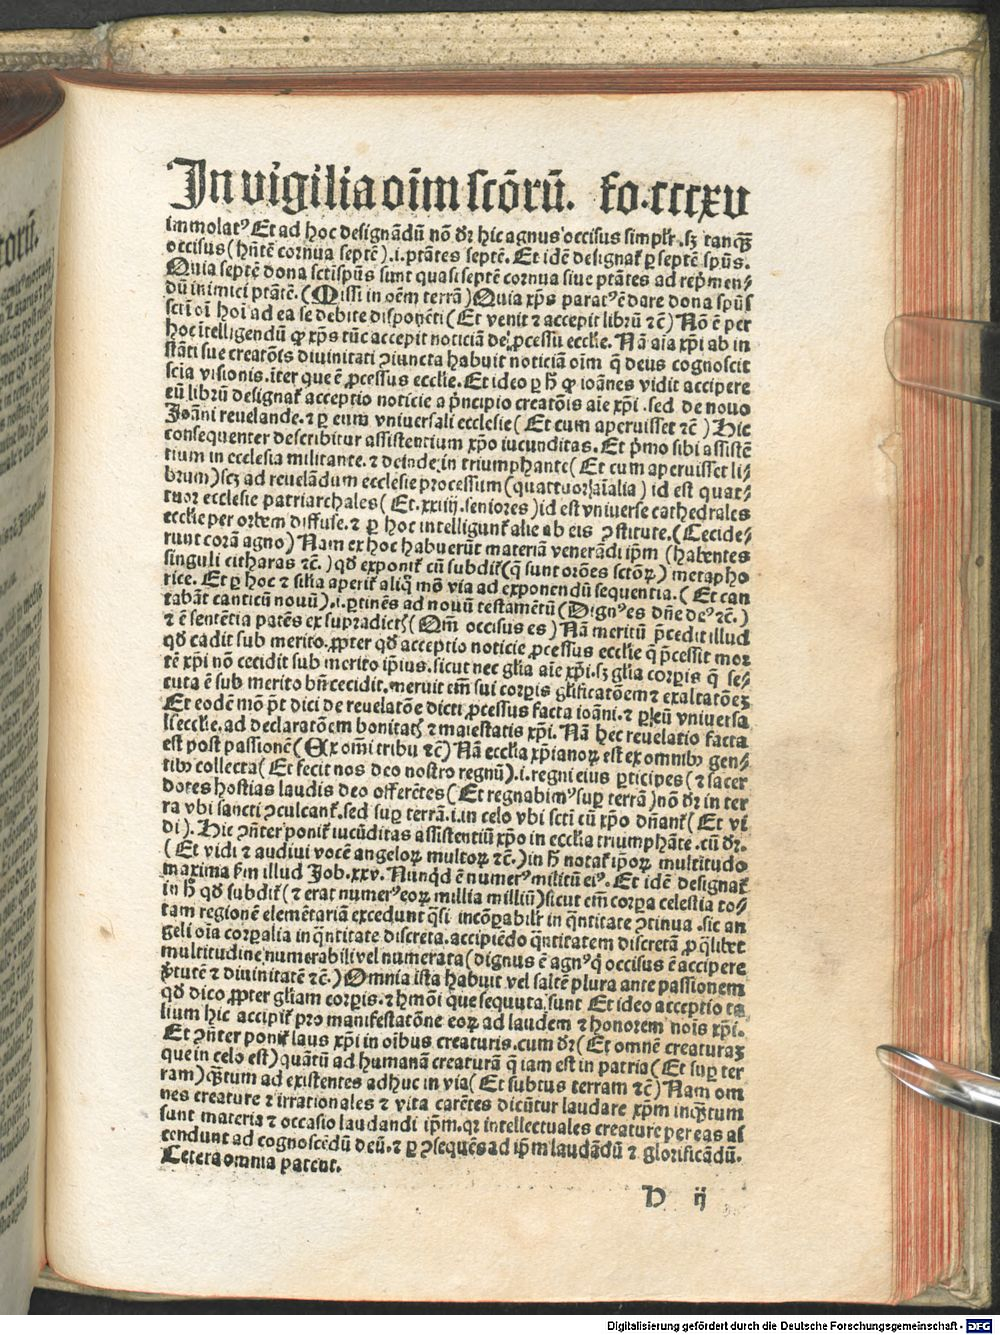 In vigilia oīm sctōrū. fo.cccxv
immolatꝰ Et ad hoc designādū nō dr̄ hic agnus occisus simplr̄ .sꝫ tanqȝ
occisus (hn̄tē cornua septē).i. ptātes septē. Et idē designat̄ ꝑ septē spūs.
Quia septē dona sctispūs sunt quasi septē cornua siue ptātes ad rep̄men⸗
dū inimici ptātē. (Missi in oēm terrā) Quia xp̄s paratꝰ ē dare dona spūs
sctī oī hoī ad ea se debite disponēti (Et venit ⁊ accepit librū ⁊c̄) Nō ē per
hoc ītelligendū ꝙ xp̄s tūc accepit noticiā de ꝓcessu eccl̄ie. Nā aīa xp̄i ab in
stāti sue creatōis diuinitati ꝯiuncta habuit noticiā oīm q̄ deus cognoscit
scīa visionis. īter que ē ꝓcessus eccl̄ie. Et ideo ꝑ h̄ ꝙ ioānes vidit accipere
eū librū designat̄ acceptio noticie a p̄ncipio creatōis aīe xp̄i .sed de nouo
Joāni reuelande. ⁊ ꝑ eum vniuersali ecclesie (Et cum aperuisset ⁊c̄) Hic
consequenter describitur assistentium xp̄o iucunditas. Et p̄mo sibi assistē
tium in ecclesia militante. ⁊ deinde in triumphante (Et cum aperuisset li⸗
brum) scꝫ ad reuelādum ecclesie processum (quattuor aīalia) id est quat⸗
tuor ecclesie patriarchales (Et .xxiiij. seniores) id est vniuerse cathedrales
eccl̄ie per orbem diffuse. ⁊ ꝑ hoc intelligunt̄ alie ab eis ꝯstitute. (Cecide⸗
runt corā agno) Nam ex hoc habuerūt materiā venerādi ip̄m (habentes
singuli citharas ⁊c̄.) qd̄ exponit̄ cū subdit̄ (q̄ sunt orōes sctōꝝ) metapho
rice. Et ꝑ hoc ⁊ silia aperit̄ aliq̄ mō via ad exponendū sequentia. (Et can
tabāt canticū nouū).i. ꝑtinēs ad nouū testamētū (Dignꝰ es dn̄e deꝰ ⁊c̄.)
⁊ ē sentētia patēs ex supradictꝭ (Qm̄ occisus es) Nā meritū p̄cedit illud
qd̄ cadit sub merito. ꝓpter qd̄ acceptio noticie ꝓcessus eccl̄ie q̄ p̄cessit mor
tē xp̄i nō cecidit sub merito ip̄ius. sicut nec gl̄ia aīe xp̄i. sꝫ gl̄ia corꝑis q̄ se⸗
cuta ē sub merito bn̄ cecidit. meruit em̄ sui corꝑis gl̄ificatōem ⁊ exaltatōeꝫ
Et eodē mō pt̄ dici de reuelatōe dicti ꝓcessus facta ioāni. ⁊ ꝑ eū vniuersa
li eccl̄ie. ad declaratōem bonitatꝭ ⁊ maiestatis xp̄i. Nā hec reuelatio facta
est post passionē (Ex omī tribu ⁊c̄) Nā eccl̄ia xp̄ianoꝝ est ex omnibꝰ gen⸗
tibꝰ collecta (Et fecit nos deo nostro regnū).i. regni eius ꝑticipes (⁊ sacer
dotes hostias laudis deo offerētes (Et regnabimꝰ suꝑ terrā) nō dr̄ in ter
ra vbi sancti ꝯculcant̄. sed suꝑ terrā.i. in celo vbi sctī cū xp̄o dn̄ant̄ (Et vi
di). Hic ꝯn̄ter ponit̄ iucūditas assistentiū xp̄o in eccl̄ia triumphāte. cū dr̄.
(Et vidi ⁊ audiui vocē angeloꝝ multoꝝ ⁊c̄.) in h̄ notat̄ ip̄oꝝ multitudo
maxima ẜm illud Job .xxv. Nunqd̄ ē numerꝰ militū eiꝰ. Et idē designat̄
in h̄ qd̄ subdit̄ (⁊ erat numerꝰ eoꝝ millia milliū) sicut em̄ corꝑa celestia to⸗
tam regionē elemētariā excedunt q̄si incōꝑabilr̄ in q̄ntitate ꝯtinua .sic an
geli oīa corꝑalia in q̄ntitate discreta. accipiēdo q̄ntitatem discretā ꝓ q̄libet
multitudine numerabili vel numerata (dignus ē agnꝰ q̄ occisus ē accipere
v̄tutē ⁊ diuinitatē ⁊c̄.) Omnia ista habuit vel saltē plura ante passionem
qd̄ dico ꝓpter gl̄iam corꝑis. ⁊ hmōi que sequuta sunt Et ideo acceptio ta
lium hic accipit̄ pro manifestatōne eoꝝ ad laudem ⁊ honorem nois xp̄i.
Et ꝯn̄ter ponit̄ laus xp̄i in oībus creaturis. cum dr̄ (Et omnē creaturaꝫ
que in celo est) quātū ad humanā creaturā q̄ iam est in patria (Et suꝑ ter
ram) qȝtum ad existentes adhuc in via (Et subtus terram ⁊c̄) Nam om
nes creature ⁊ irrationales ⁊ vita carētes dicūtur laudare xp̄m inqȝtum
sunt materia ⁊ occasio laudandi ip̄m. qꝛ intellectuales creature per eas as
cendunt ad cognoscēdū deū. ⁊ ꝑ ꝯsequēs ad ip̄m laudādū ⁊ glorificādū.
Cetera omnia patent.
D ij
Digitalisierung gefördert durch die Deutsche Forschungsgemeinschaft - DFG